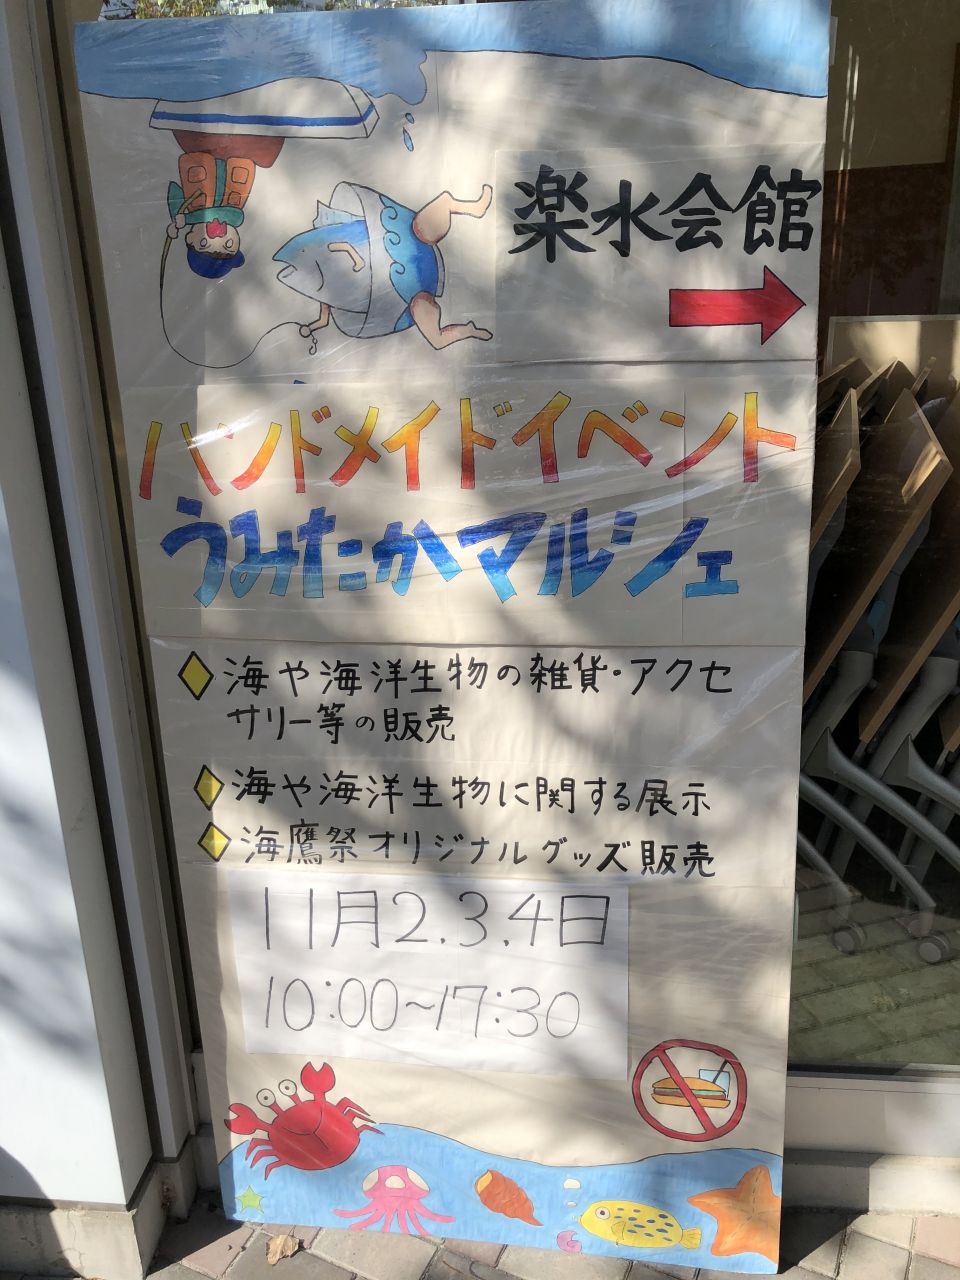 楽水会館
ハンドメイドイベント
うみたかマルシェ
海や海洋生物の雑貨・アクセ
サリー等の販売
海や海洋生物に関する展示
海鷹祭オリジナルグッズ販売
11月2.3.4日
10:00~17:30